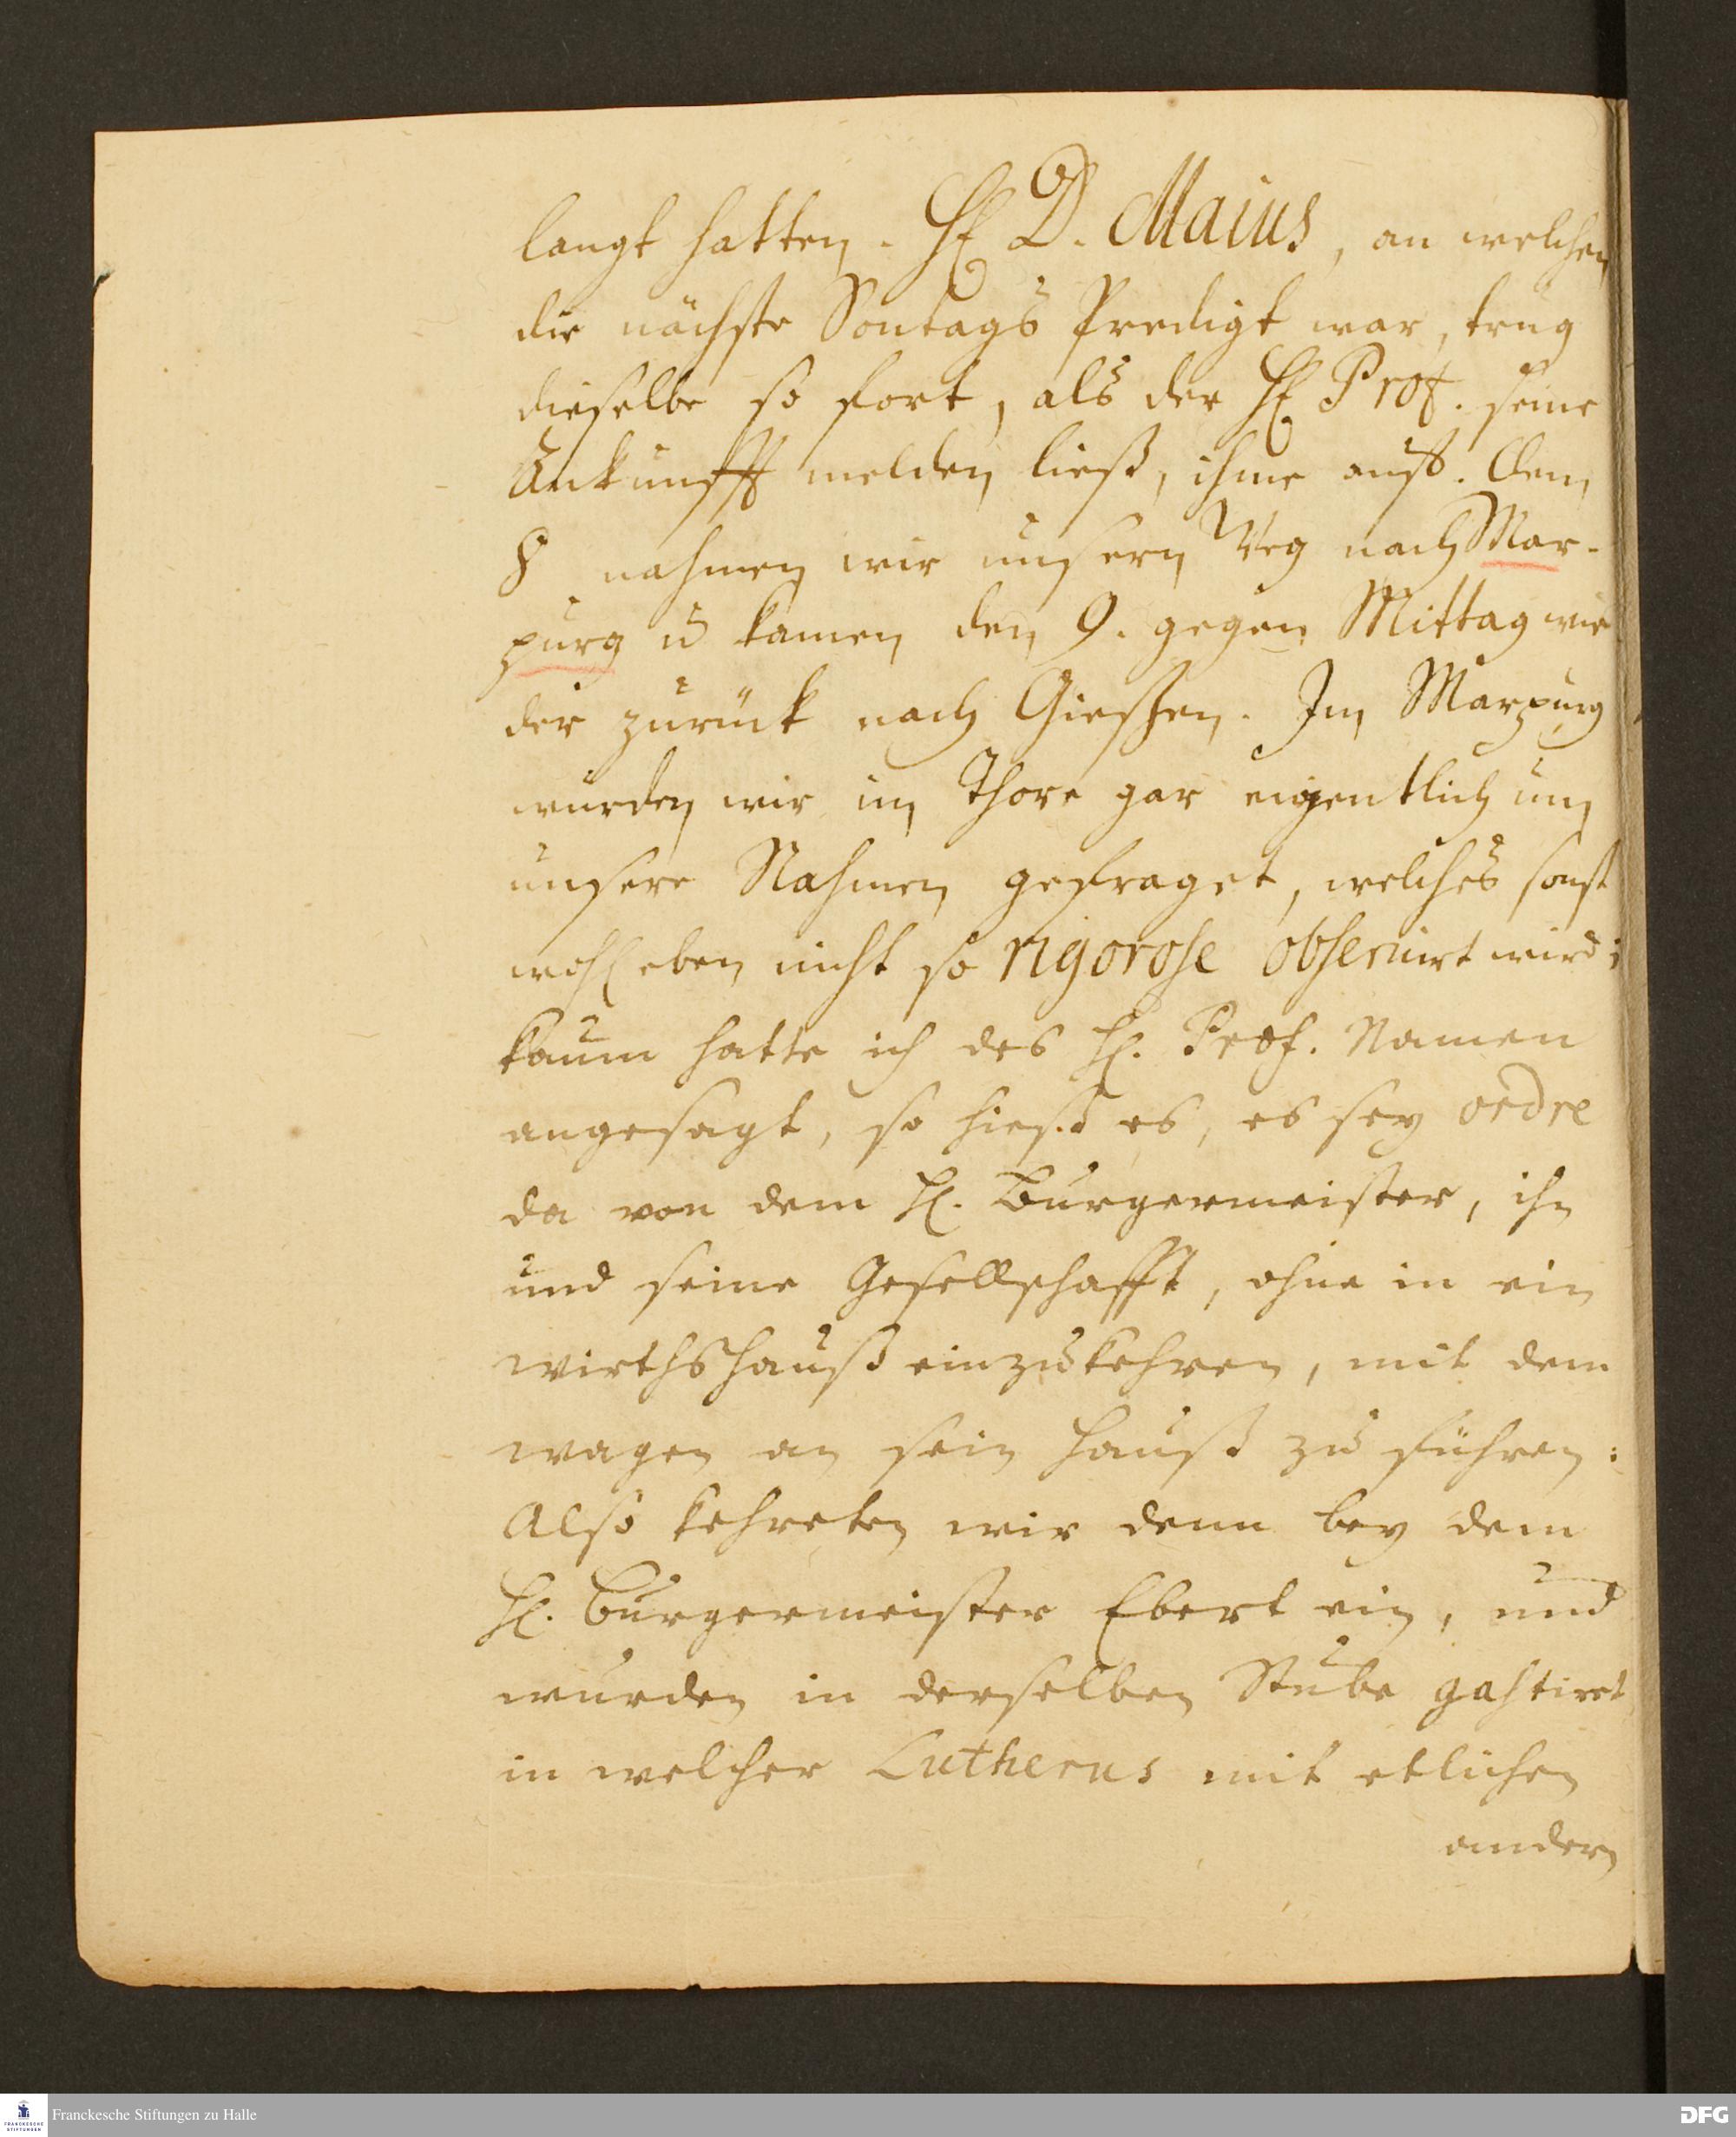 langt hatten. H. D. Maius, an welchen
die nächste Sontags Predigt war, trug
dieselbe so fort, als der H. Prof. seine
Ankunfft melden ließ, ihme auf. Den
8 nahmen wir unsern Weg nach Mar-
purg u kamen den 9. gegen Mittag wie
der zurück nach Gießen. Im Marpurg
wurden wir im Thore gar eigentlich um
unsere Nahmen gefraget, welches sonst
wohl eben nicht so rigorose observirt wird;
kaum hatte ich des H. Prof. Namen
angesagt, so hieß es, es sey ordre
da von dem H. Burgermeister, ihn
und seine Gesellschafft, ohne in ein
wirthshauß einzukehren, mit dem
wagen an sein Hauß zu führen:
Also kehreten wir denn bey dem
H. Burgermeister Ebert ein, und
wurden in derselben Stube gastiret
in welcher Lutherus mit etlichen
andern
Franckesche Stiftungen zu Halle
FRANCKESCHE
STIFTUNGEN
DFG